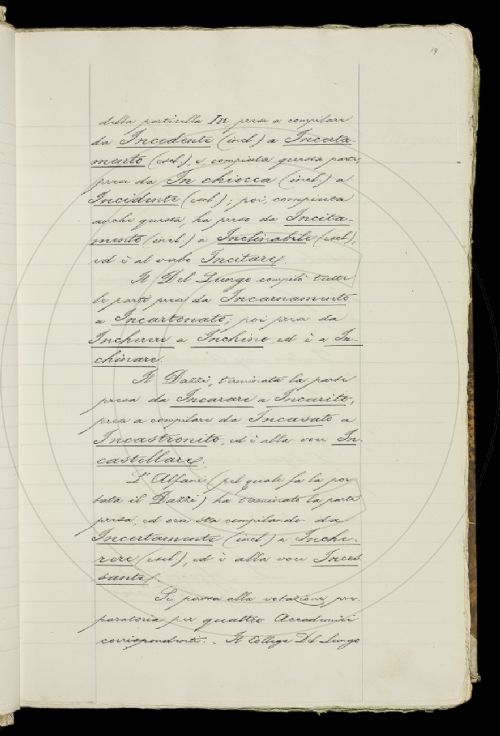 19
della particella In presa a compilare
da Incedente (incl.) a Incerta-
mente (escl.), e, compiuta questa parte,
presa da In chiocca (incl.) a
Incidente (escl.); poi, compiuta
anche questa, ha preso da Incita-
mento (incl.) a Inclinabile (escl.),
ed è al verbo Incitare.
Il Del Lungo compilò tutta
la parte presa da Incarnamento
a Incartonato, poi prese da
Incherere a Inchino ed è a In-
chinare.
Il Dazzi, terminata la parte
presa da Incarare a Incarito,
prese a compilare da Incasato a
Incastronito, ed è alla voce In-
castellare.
L'Alfani (pel quale fa la por-
tata il Dazzi) ha terminato la parte
presa, ed ora sta compilando da
Incertamente (incl.) a Inche-
rere (escl.), ed è alla voce Inces
sante.
Si passa alla votazione pre
paratoria per quattro Accademici
corrispondenti. - Il Collega Del Lungo